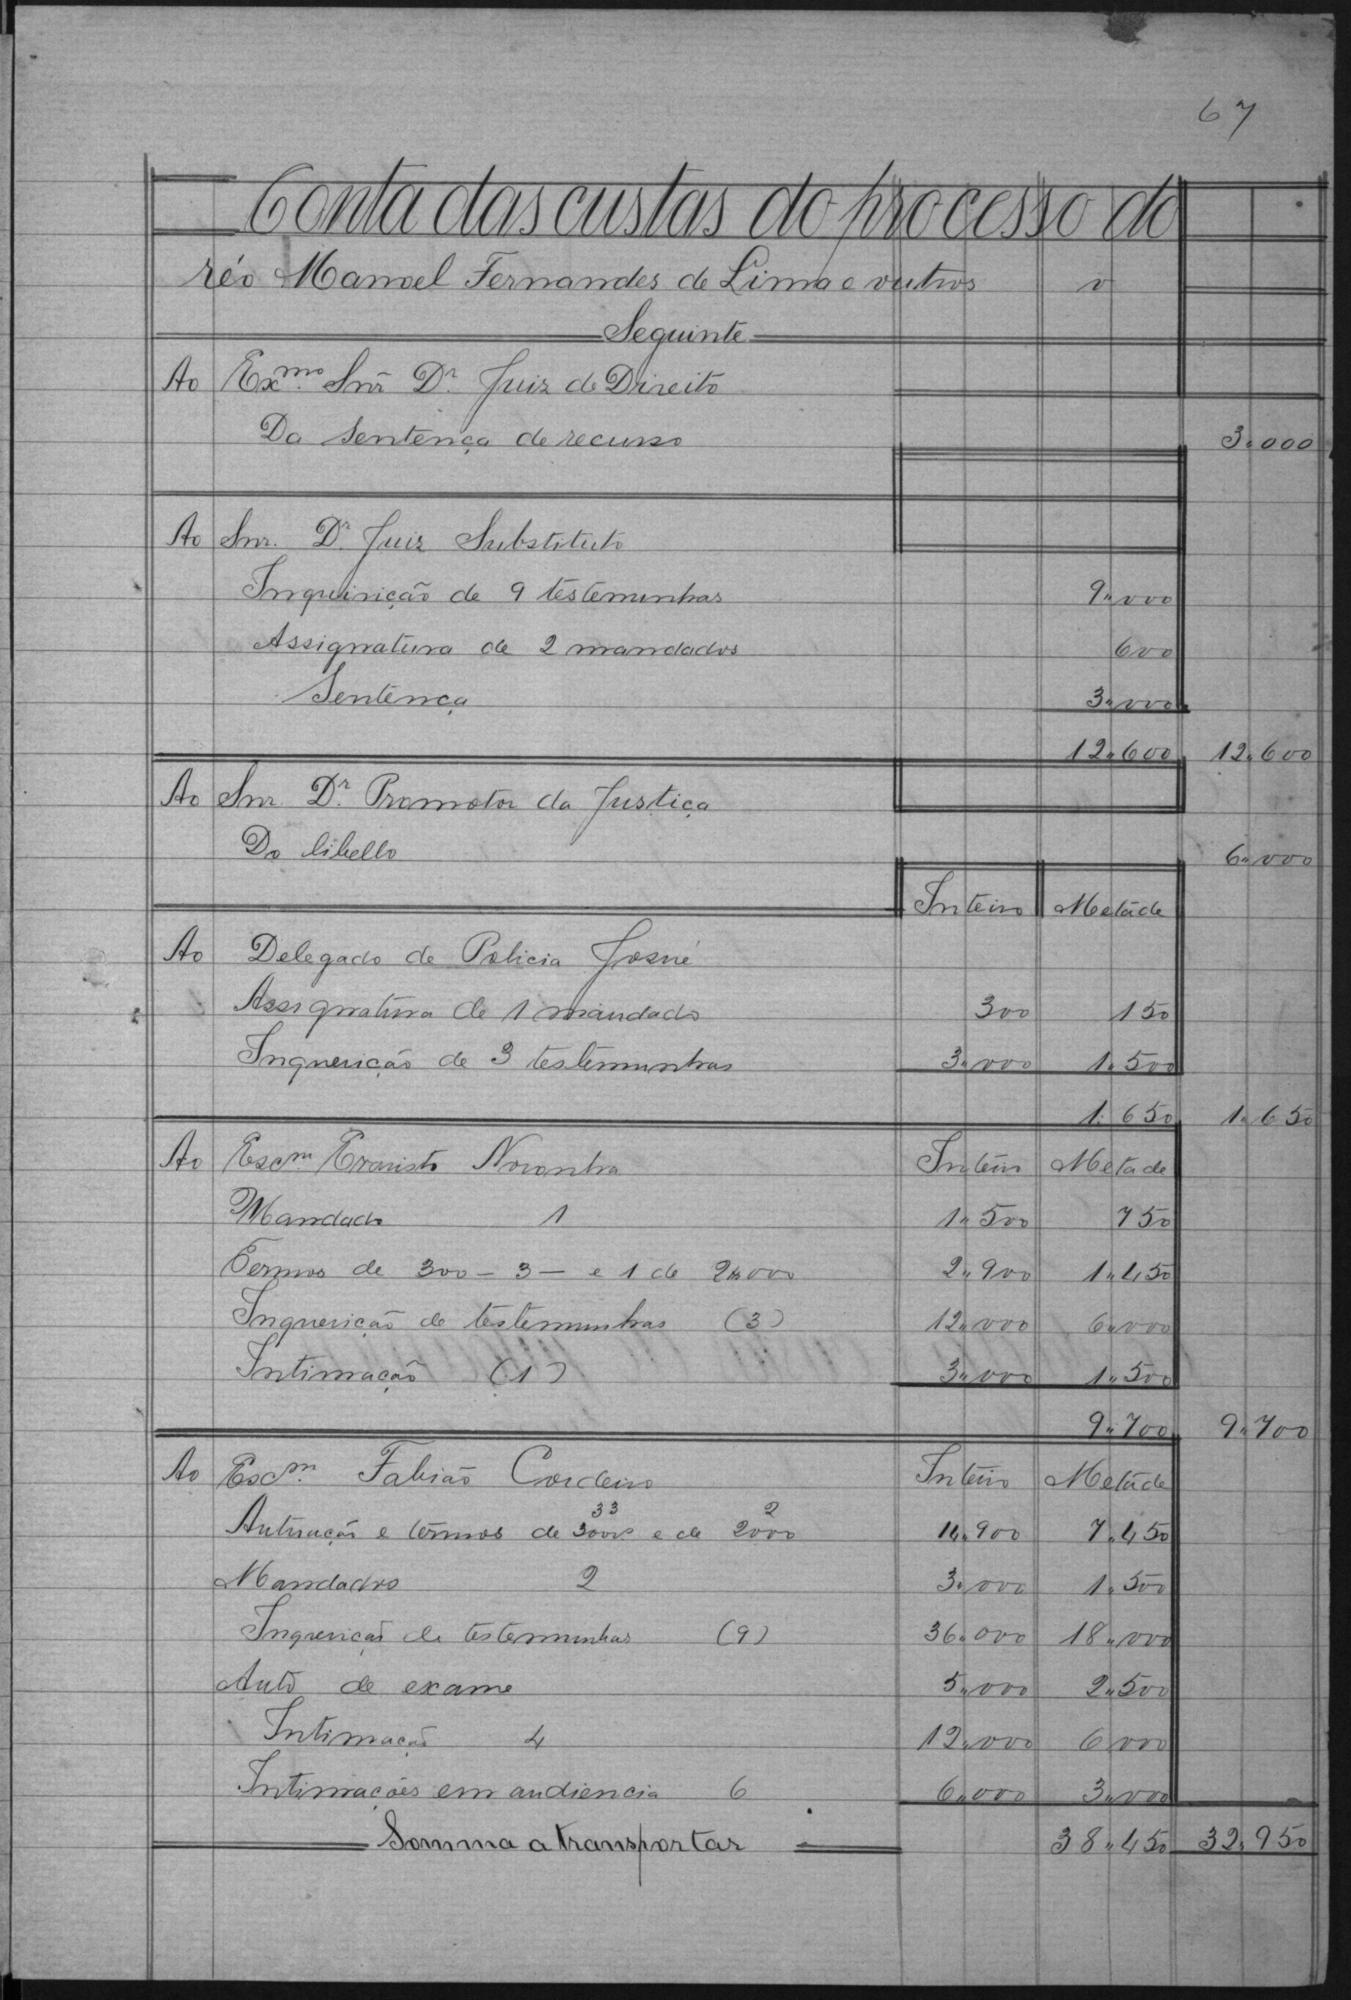 67
Conta das custas do processo do
réo Manoel Fernandes de Lima e outros o
Seguinte
Ao Exmo. Snr Dr. Juiz de Direito
Da Sentença de recurso 3.000
Ao Snr. Dr. Juiz Substituto
Inquirição de 9 testemunhas 9.000
Assignatura de 2 mandados 600
Sentença 3.000
12.600 12.600
Ao Snr Dr. Promotor da Justiça
Do libello 6.000
Inteiro Metade
Ao Delegado de Policia Josué
Assignatura de 1 mandado 300 150
Inquerição de 3 testemunhas 3.000 1.500
1.650 1.650
Ao Escm Evaristo Noronha Inteiro Metade
Mandado 1 1.500 750
Termos de 300 - 3 - e 1 de 2.000 2.900 1.450
Inquerição de testemunhas (3) 12.000 6.000
Intimação (1) 3.000 1.500
9.700 9.700
Ao Escm. Fabião Cordeiro Inteiro Metade
33 2
Autuação e termos de 300rs e de 2000 14.900 7.450
Mandados 2 3.000 1.500
Inquerição de testemunhas (9) 36.000 18.000
Auto de exame 5.000 2.500
Intimação 4 12.000 6000
Intimações em audiencia 6 6.000 3.000
Somma a transportar 38.450 32.950